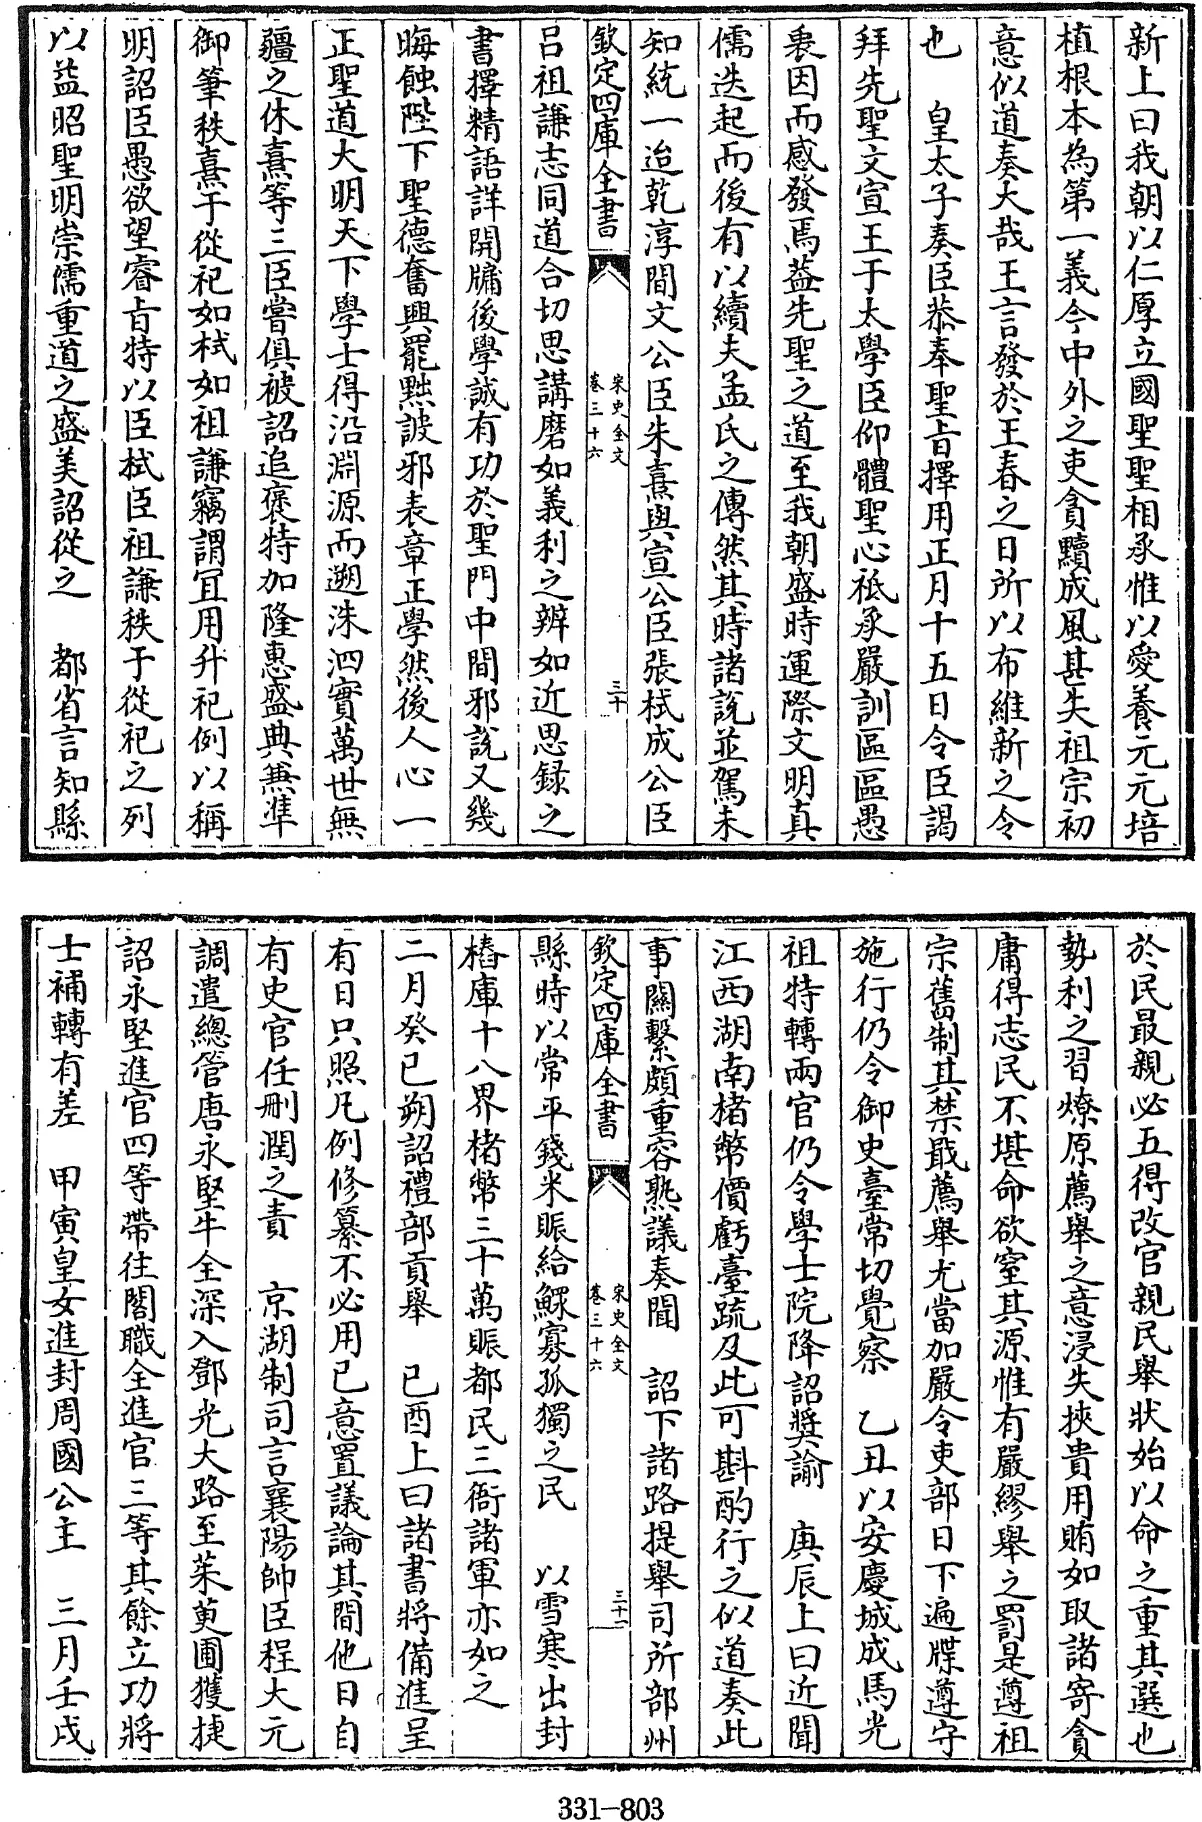 新上曰我朝以仁厚立國聖聖相承惟以愛養元元培
植根本為第一義今中外之吏貪黷成風甚失祖宗初
意似道奏大哉王言發於王春之日所以布維新之令
也　皇太子奏臣恭奉聖旨擇用正月十五日令臣謁
拜先聖文宣王于太學臣仰體聖心祇承嚴訓區區愚
衷因而感發焉葢先聖之道至我朝盛時運際文明真
儒迭起而後有以續夫孟氏之傳然其時諸說並駕未
知統一迨乾淳間文公臣朱熹與宣公臣張栻成公臣
欽定四庫全書　宋史全文　卷三十六　三十
呂祖謙志同道合切思講磨如義利之辨如近思録之
書擇精語詳開牖後學誠有功於聖門中間邪說又幾
晦蝕陛下聖德奮興罷黜詖邪表章正學然後人心一
正聖道大明天下學士得沿淵源而遡洙泗實萬世無
疆之休熹等三臣嘗俱被詔追褒特加隆惠盛典兼準
御筆秩熹于從祀如栻如祖謙竊謂宜用升祀例以稱
明詔臣愚欲望睿旨特以臣栻臣祖謙秩于從祀之列
以益昭聖明崇儒重道之盛美詔從之　都省言知縣
於民最親必五得改官親民舉狀始以命之重其選也
勢利之習燎原薦舉之意浸失挾貴用賄如取諸寄貪
庸得志民不堪命欲窒其源惟有嚴繆舉之罰是遵祖
宗舊制其禁戢薦舉尤當加嚴令吏部日下遍牒遵守
施行仍令御史臺常切覺察　乙丑以安慶城成馬光
祖特轉兩官仍令學士院降詔奬諭　庚辰上曰近聞
江西湖南楮幣價虧臺疏及此可斟酌行之似道奏此
事關繫頗重容熟議奏聞　詔下諸路提舉司所部州
欽定四庫全書　宋史全文　卷三十六　三十一
縣時以常平錢米賑給鰥寡孤獨之民　以雪寒出封
樁庫十八界楮幣三十萬賑都民三衙諸軍亦如之
二月癸巳朔詔禮部貢舉　己酉上曰諸書將備進呈
有日只照凡例修纂不必用己意置議論其間他日自
有史官任刪潤之責　京湖制司言襄陽帥臣程大元
調遣總管唐永堅牛全深入鄧光大路至茱萸圃獲捷
詔永堅進官四等帶往閤職全進官三等其餘立功將
士補轉有差　甲寅皇女進封周國公主　三月壬戌
331-803